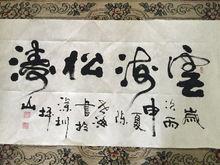 雲海松濤
歲次丙申夏陈
書於深圳